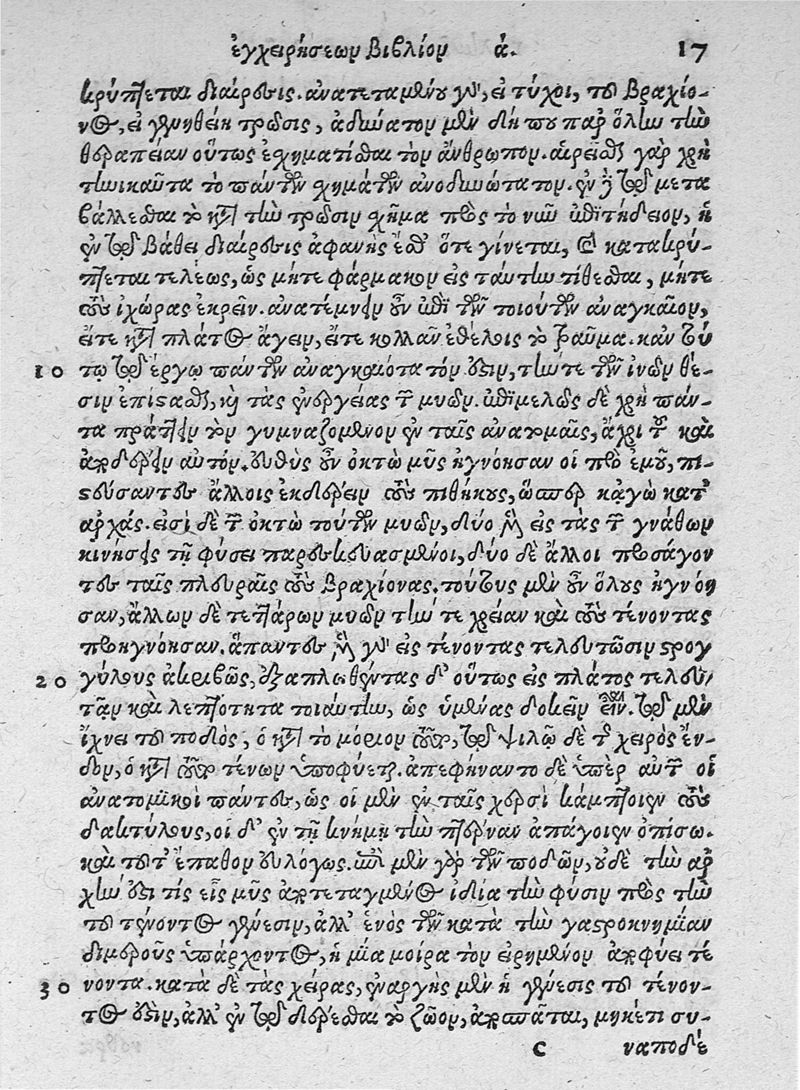 ἐγχειρήσεων βιβλίον ά. 17
κρύπτεται διαίρεσις. ἀνατεταμένου γὰρ, εἰ τύχοι, τοῦ βραχίο-
νος, εἰ γενηθείη τρῶσις, ἀδύνατον μὲν δή που παρ' ὅλην τὴν
θεραπείαν οὕτως ἐσχηματίσθαι τὸν ἄνθρωπον. αἱρεῖσθαι γὰρ χρὴ
τηνικαῦτα τὸ πάντων σχημάτων ἀνοδυνώτατον. ἐν δὲ τῷ μετα
βάλλεσθαι τὸ κατὰ τὴν τρῶσιν σχῆμα πρὸς τὸ νῦν ἐπιτήδειον, ἡ
ἐν τῷ βάθει διαίρεσις ἀφανὴς ἔσθ' ὅτε γίνεται, καὶ κατακρύ-
πτεται τελέως, ὡς μήτε φάρμακον εἰς ταύτην τίθεσθαι, μήτε
τοὺς ἰχώρας ἐκρεῖν. ἀνατέμνειν οὖν ἐπὶ τῶν τοιούτων ἀναγκαῖον,
εἴτε κατὰ πλάτος ἄγειν, εἴτε κολλᾶν ἐθέλοις τὸ τραῦμα. κἀν τού
10 τῳ τῷ ἔργῳ πάντων ἀναγκαιότατόν ἐστιν, τήν τε τῶν ἰνῶν θέ-
σιν ἐπίστασθαι, καὶ τὰς ἐνεργείας τῶν μυῶν. ἐπιμελῶς δὲ χρὴ πάν-
τα πράττειν τὸν γυμναζόμενον ἐν ταῖς ἀνατομαῖς, ἄχρι τοῦ καὶ
ἀποδέρειν αὐτόν. εὐθὺς οὖν ὀκτὼ μῦς ἠγνόησαν οἱ πρὸ ἐμοῦ, πι-
στεύσαντες ἄλλοις ἐκδέρειν τοὺς πιθήκους, ὥσπερ κἀγὼ κατ'
ἀρχάς. εἰσὶ δὲ τῶν ὀκτὼ τούτων μυῶν, δύο μὲν εἰς τὰς τῶν γνάθων
κινήσεις τῇ φύσει παρεσκευασμένοι, δύο δὲ ἄλλοι προσάγον
τες ταῖς πλευραῖς τοὺς βραχίονας. τούτους μὲν οὖν ὅλους ἠγνόη
σαν, ἄλλων δὲ τεττάρων μυῶν τήν τε χρείαν καὶ τοὺς τένοντας
προηγνόησαν. ἅπαντες μὲν γὰρ εἰς τένοντας τελευτῶσιν στρογ
20 γύλους ἀκριβῶς, ἐξαπλωθέντας δ' οὕτως εἰς πλάτος τελευ/
τᾶν καὶ λεπτότητα τοιαύτην, ὡς ὑμένας δοκεῖν εἶναι. τῷ μὲν
ἴχνει τοῦ ποδὸς, ὁ κατὰ τὸ μόριον τοῦτο, τῷ ψιλῷ δὲ τῆς χειρὸς ἔν-
δον, ὁ κατὰ τοῦτο τένων ὑποφύεται. ἀπεφήναντο δὲ ὑπὲρ αὐτῶν οἱ
ἀνατομικοὶ πάντες, ὡς οἱ μὲν ἐν ταῖς χερσὶ κάμπτοιεν τοὺς
δακτύλους, οἱ δ' ἐν τῇ κνήμῃ τὴν πτέρναν ἀπάγοιεν ὀπίσω.
καὶ τοῦτ' ἔπαθον εὐλόγως. ἐπὶ μὲν γὰρ τῶν ποδῶν, οὐδὲ τὴν ἀρ
χήν ἐστί τις εἷς μῦς ἀποτεταγμένος ἰδίᾳ τὴν φύσιν πρὸς τὴν
τοῦ τένοντος γένεσιν, ἀλλ' ἑνὸς τῶν κατὰ τὴν γαστροκνημίαν
διμεροῦς ὑπάρχοντος, ἡ μία μοίρα τὸν εἰρημένον ἀποφύει τέ
30 νοντα. κατὰ δὲ τὰς χεῖρας, ἐναργὴς μὲν ἡ γένεσις τοῦ τένον-
τος ἐστὶν, ἀλλ' ἐν τῷ δέρεσθαι τὸ ζῶον, ἀποσπᾶται, μηκέτι συ-
c ναποδέ